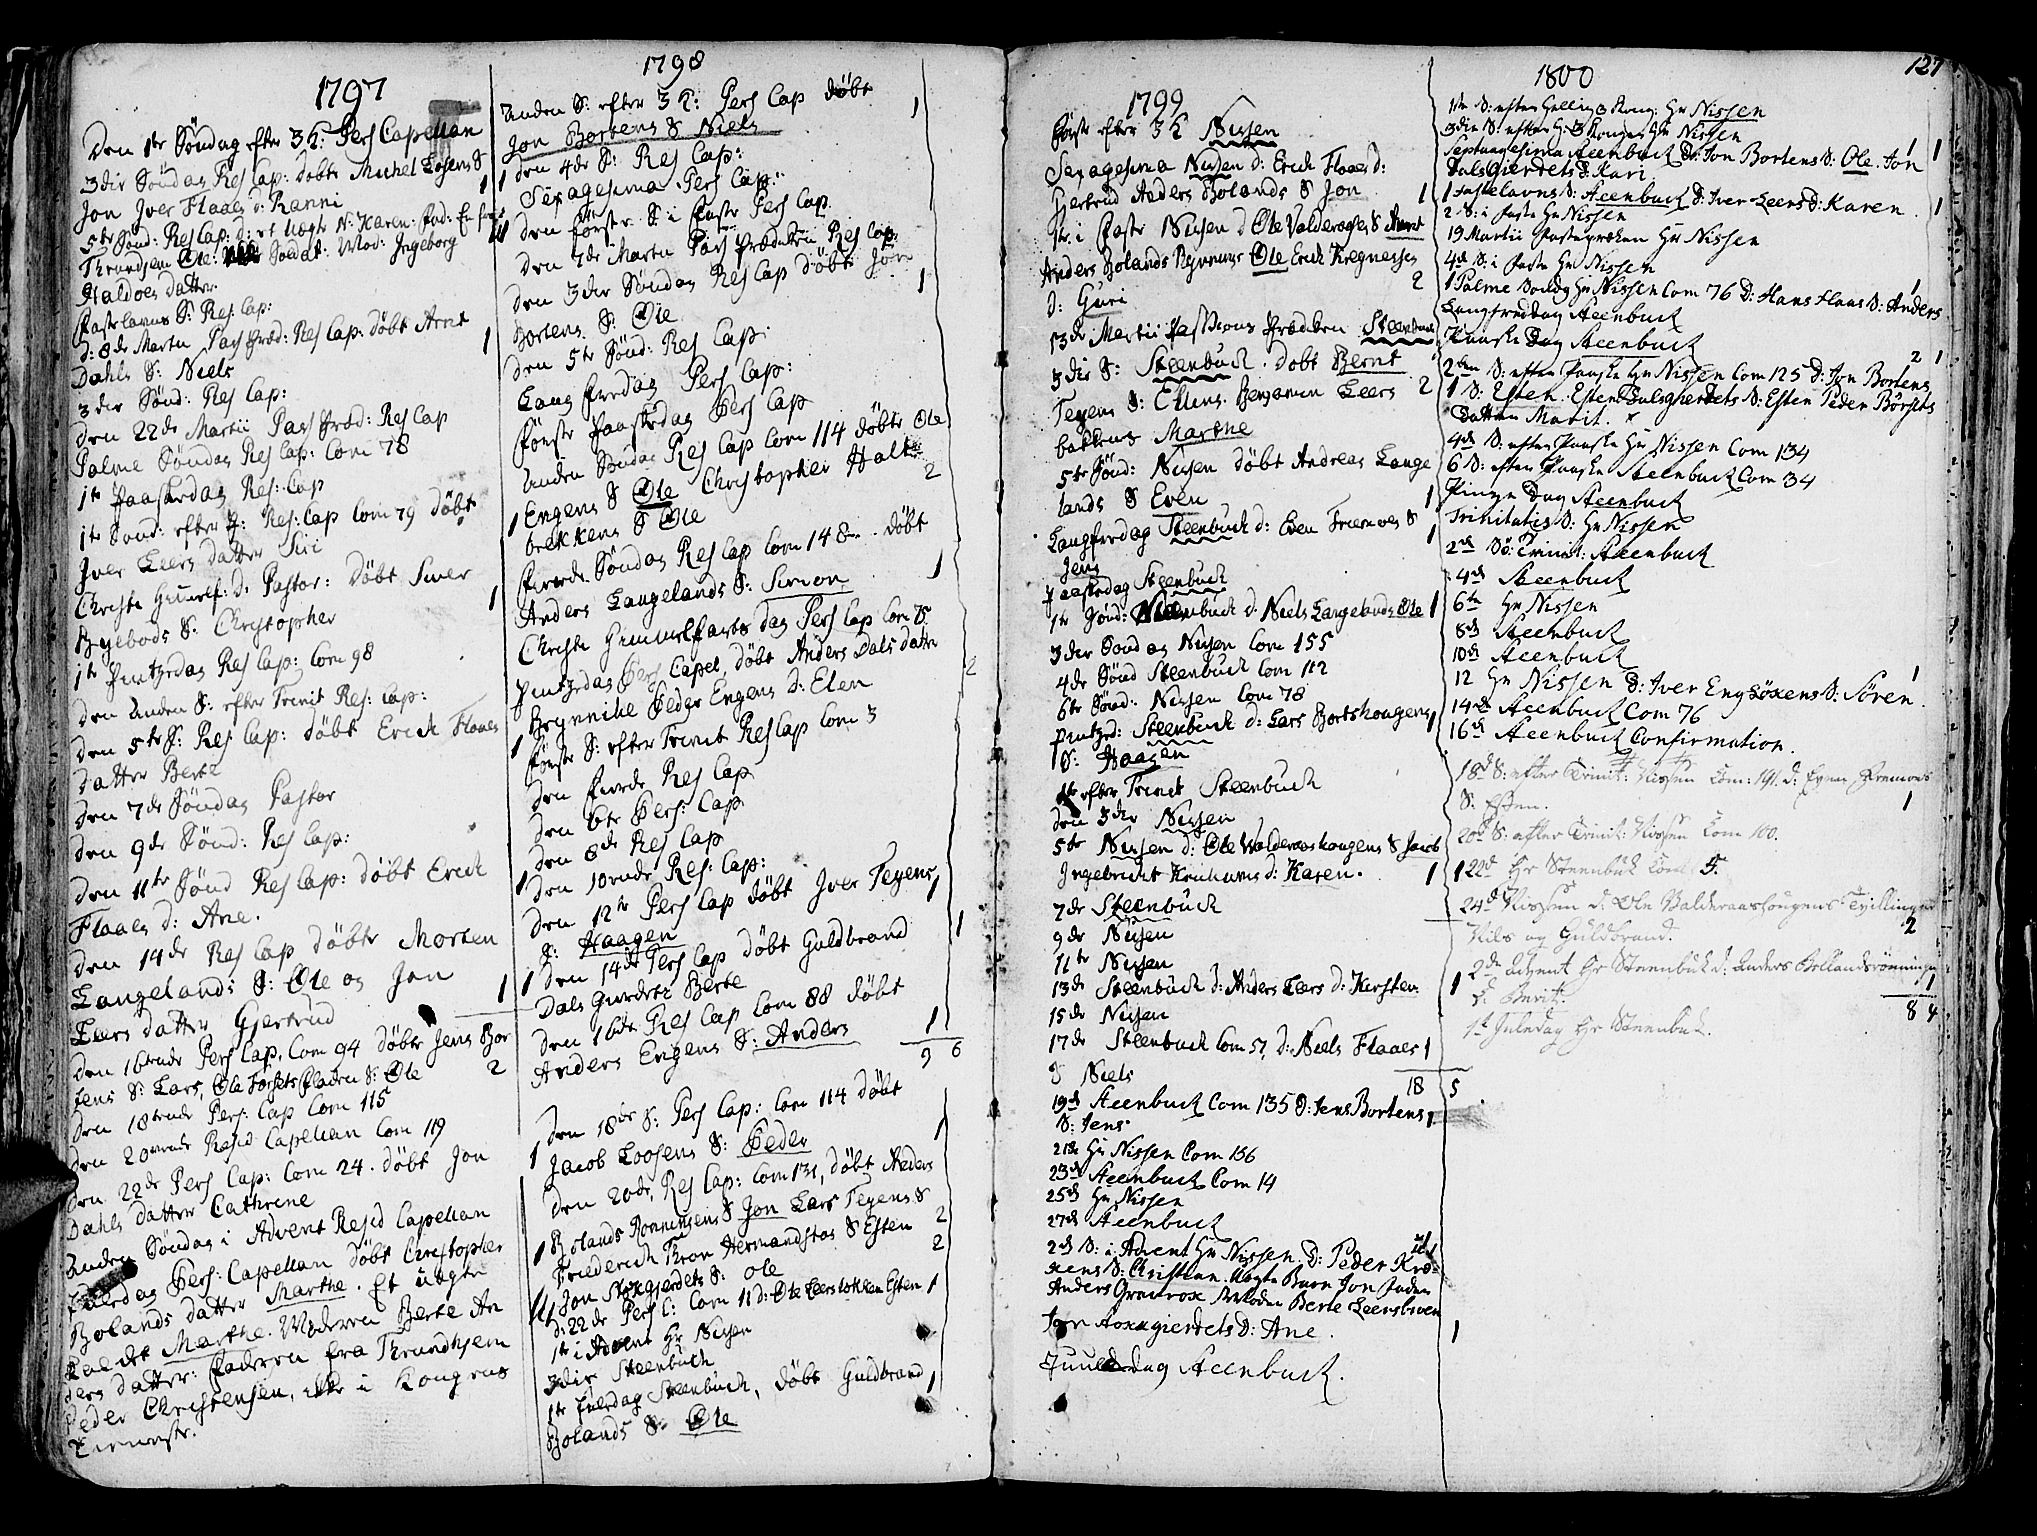 1797
Den 1te Søndag efter 3 K: Pers Capellan
3die Søndag Res Cap: døbt Michel Losens S
Jon Iver Flaaes d: Ranni 1
5te Sønd: Res Cap: d: et Uægte N: Karen: Fad:
Throndsen Ole: Soldat: Mod: Ingeborg
Haldoes datter
Fastelavns S: Res: Cap:
d: 8de Martii Pass Præd: Res Cap: døbt Arnt
Dahls S: Niels 1
3die Sønd: Res Cap:
den 22de Martii Pass Præd: Res Cap
Palme Søndag Res Cap: Com 78
1te Paaskedag Res: Cap
1te Sønd: efter P: Res: Cap Com 79 døbt
Iver Leers datter Siri
Christi Himmelf: d: Pastor: døbt Siver
Bygebods S: Christopher 1
1te Pintzedag Res Cap: Com 98
den Anden S: efter Trinit Res: Cap:
den 5te S: Res Cap: døbt Erich Flaaes
datter Berte
den 7de Søndag Pastor
den 9de Sønd: Res Cap:
den 11te Sønd Res Cap: døbt Erich
Flaaes d: Ane.
den 14de Res Cap døbte Morten
Langelands S: Ole og Jon
Leers datter Gjertrud 1
den 16tende Pers Cap, Com 94 døbte Jens Bor
tens S: Lars, Ole Forsets Pladsen S: Ole 2
den 18tende Pers: Cap Com 115
den 20vende Resid Capellan Com 119
den 22de Pers Cap: Com 24. døbt Jon
Dahls datter Cathrine
Anden Søndag i Advent Resid Capellan
Juledag Pers: Capellan døbt Christopher
Bolands datter Marthe. Et uægte
kaldet Marthe. Moderen Berte An
ders datter: Faderen fra Thrundhjem
Peder Christensen, ikke i Kongens
Tieneste.
1798
Anden S: efter 3 K: Pers Cap døbt
Jon Bortens S Niels 1
den 4de S: Res Cap:
Sexagesima Pers Cap:
den første S: i Faste Pers Cap
den 7de Martii Pass Prædiken Res Cap:
den 3die Søndag Res Cap døbt Jon
Bortens S: Ole 1
den 5te Sønd: Res Cap:
Lang Fredag Pers Cap:
første Paaskedag Pers Cap
Anden Søndag Res Cap Com 114 døbte Ole
Engens S Ole Christopher Halt
bekkens S Ole 2
fierde Søndag Res Cap Com 148. døbt
Anders Langelands S: Simon 1
Christi Himmelfarts dag Pers Cap Com 75
Pintzedag Pers Capel, døbt Anders Dals datter
Brynnild Pedes Engens d: Elen 2
første S: efter Trinit Res Cap Com 3
den fierde Res Cap
den 6te Pers: Cap
den 8de Res Cap
den 10ende Res: Cap:
den 12te Pers Cap døbt Iver Teyens
S: Haagen 1
den 14de Pers Cap døbt Guldbrand
Dals Gierdets Berte 1
den 16de Res Cap Com 88 døbt
Anders Engens S: Anders 1
9 6
den 18de S: Pers Cap: Com 114 døbt
Jacob Loosens S: Peder 1
den 20de, Res Cap: Com 131, døbt Anders
Bolands Rønningens S Jon Lars Teyens S 2
Friederich Thron Hermandstas S Esten 2
Jon Stokgierdets S: Ole
d: 22de Pers C: Com 11 d: Ole Leerstokken Esten 1
1te i Advent Hr Nissen
3die Steenbuch
1te Juledag Steenbuch, døbt Guldbrand
Bolands S: Ole 1
1799
første efter 3 K Nissen
Sexagesima Nissen d: Erich Flaaes d:
Gjertrud Anders Bolands S Jon 1
1te i Faste Nissen d Ole Valderaases S Arnt
Anders Bolands Rønnings Ole Erich Kregnessen
d: Guri 2
13de Martii Passions Prædiken Steenbuch
3die S: Steenbuch. døbt Bernt
Teyens d: Ellens. Benjamin Leers 2
bakkens Marthe
5te Sønd: Nissen døbt Andreas Lange
lands S Even 1
Langfredag Steenbuch d: Even Fremoes S
Jens 1
Paaskedag Steenbuck
1te Sønd: Steenbuch d: Niels Langelands Ole 1
3die Søndag Nissen Com 155
4de Sønd Steenbuch Com 112
6te Sønd: Nissen Com 78
Pintzed: Steenbuch d: Lars Bortshougens 1
S: Haagen
1te efter Trinit Steenbuch
den 3die Nissen
5te Nissen d: Ole Walderashougens S Jacob
Ingebricht Krukums d: Karen. 1
7de Steenbuch
9de Nissen
11te Nissen
13de Steenbuch d: Anders Leers d: Kirsten 1
15de Nissen
17de Steenbuch Com 57, d: Niels Flaaes 1
S Niels
18 5
19de Steenbuck Com 135 D: Jens Bortens 1
S: Jens
21de Hr Nissen Com 156
23de Steenbuck Com 14
25de Hr Nissen
27de Steenbuck
2de S: i Advent Hr Nissen. D: Peder Krø
kens S: Christian. Uægte Barn Jon Faden
Anders Granrox Moden Berte Leersbroen
Jon Stoxgierdets D: Ane. 1
Juuledag Steenbuck.
1800
127
1te S: efter Hellig 3 Kong: Hr Nissen
3die S: efter H: 3 Konger Hr Nissen
Septuagesima Steenbuck D: Jon Bortens S: Ole. Jon 1
Dalsgierdets D: Kari
1 Fastelavns S: Steenbuck D: Iver Leers D: Karen. 1
2. S: i Faste Hr Nissen
19 Martii Fasteprøken Hr Nissen
4de S: i Faste Hr Nissen
1 Palme Søndg Hr Nissen Com 76 D: Hans Flaas S: Anders
Langfredag Steenbuck
Paaske Dag Steenbuck
2den S: efter Paaske Hr Nissen Com 125 D: Jon Bortens 2 1
1 S: Esten. Esten Dalsgierdets S: Esten Peder Børsets
Datter Marit.
4de S: efter Paaske Hr Nissen Com 134
6 S: efter Paaske Steenbuck Com 34
Pinze Dag Steenbuck
Trinitatis S: Hr Nissen
2de Sø: Trinit: Steenbuck
4de Steenbuck
6te Hr Nissen
8de Steenbuck
10de Steenbuck
12 Hr Nissen D: Iver Engsøxens S: Søren. 1
14de Steenbuck Com 76
16de Steenbuck Confirmation.
18d S: efter Trinit: Nissen Com: 141. d. Even Fremoes
S: Esten. 1
20d S: efter Trinit: Nissen Com 100.
1 22d Hr Steenbuk Com: 5.
24d Nissen d. Ole Valderaashougens Tvillinger
Nils og Guldbrand. 2
2de Advent Hr Steenbuk d: Anders Bollandsrønningen
d: Berit. 1
8 4
1st Juledag Hr Steenbuk.